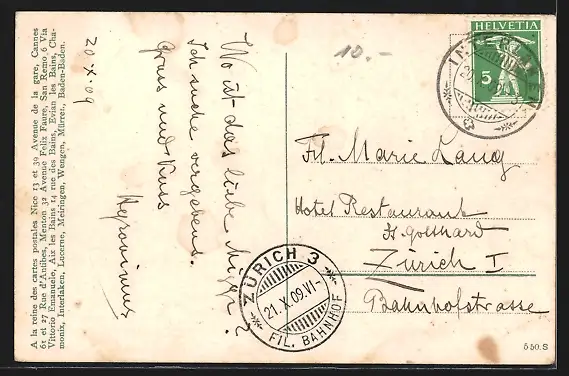 A la reine des cartes postales Nice 13 et 39 Avenue de la gare, Cannes
61 et 27 Rue d'Antibes, Menton 32 Avenue Felix Faure, San Remo 6 Via
Vittorio Emanuele, Aix les Bains 14 rue des Bains, Evian les Bains, Cha-
monix, Interlaken, Lucerne, Meiringen, Wengen, Mürren, Baden-Baden.
20.X.09
Wo ist das liebe
Ich suche vergebens.
Gruss und Kuss
10.-
HELVETIA
5
Frl. Marie Lang
Hotel Restaurant
St. Gotthard
Zürich I
Bahnhofstrasse
ZÜRICH 3
21.X.09.VI-
FIL. BAHNHOF
5 50. S